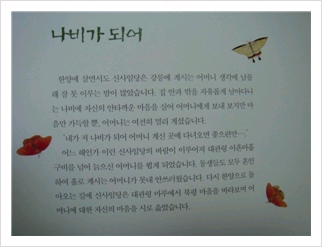 나비가 되어
한양에 살면서도 신사임당은 강릉에 계시는 어머니 생각에 남몰
래 잠 못 이루는 밤이 많았습니다. 집 안과 밖을 자유롭게 넘나다니
는 나비에 자신의 안타까운 마음을 실어 어머니에게 보내 보지만 마
음만 가득할 뿐, 어머니는 여전히 멀리 계셨습니다.
"내가 저 나비가 되어 어머니 계신 곳에 다녀오면 좋으련만…."
어느 해인가 이런 신사임당의 바람이 이루어져 대관령 아흔아홉
구비를 넘어 늙으신 어머니를 뵙게 되었습니다. 동생들도 모두 혼인
하여 홀로 계시는 어머니가 못내 안쓰러웠습니다. 다시 한양으로 돌
아오는 길에 신사임당은 대관령 마루에서 북평 마을을 바라보며 어
머니에 대한 자신의 마음을 시로 읊었습니다.